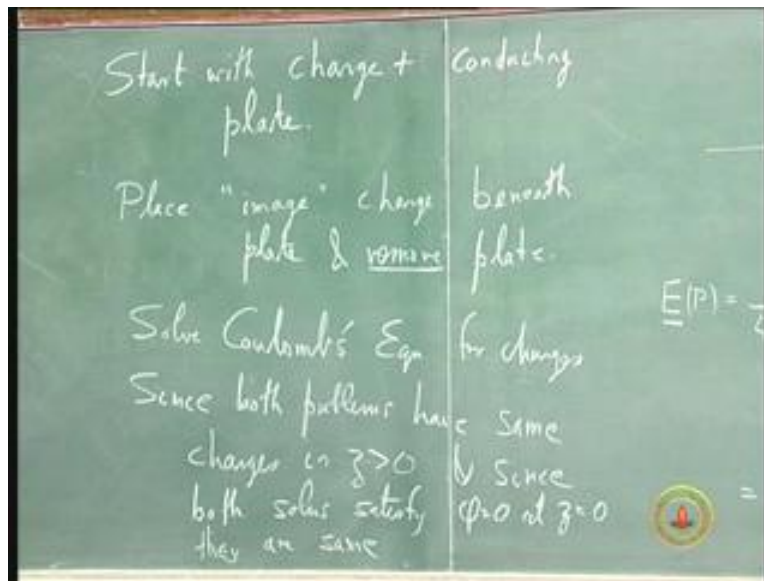 Start with charge + conducting
plate.
Place "image" charge beneath
plate & remove plate.
Solve Coulomb's Eqn for charges
Since both problems have same
charges in z>0 & since
both solns satisfy φ=0 at z=0
they are same
E(P) =
=